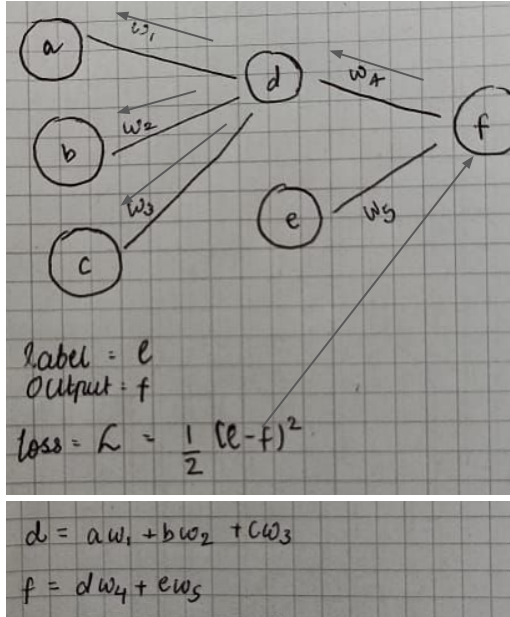 a
w₁
d
w₄
f
b
w₂
w₃
c
e
w₅
Label = l
Output = f
Loss = L = 1/2 (l-f)²
d = aw₁ + bw₂ + cw₃
f = dw₄ + ew₅